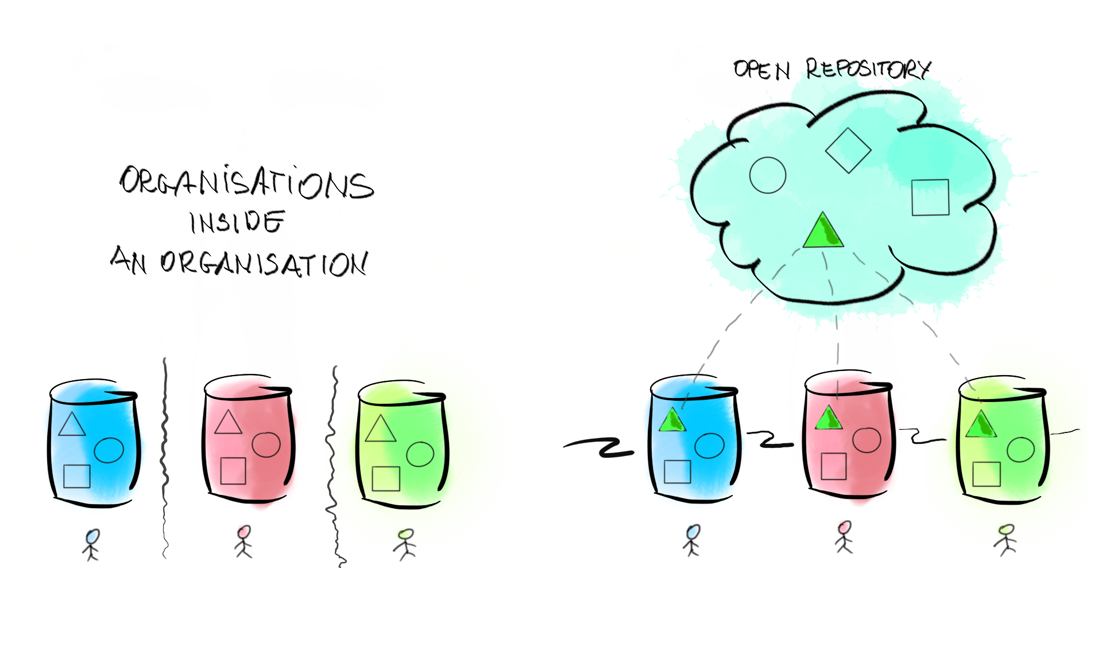 ORGANISATIONS
INSIDE
AN ORGANISATION
OPEN REPOSITORY